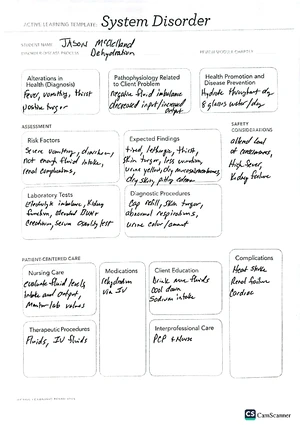 ACTIVE LEARNING TEMPLATE: System Disorder
STUDENT NAME Jason McClelland
DISORDER/DISEASE PROCESS Dehydration REVIEW MODULE CHAPTER
Alterations in
Health (Diagnosis)
Fever, vomiting, thirst
Pathophysiology Related
to Client Problem
negative fluid imbalance
decreased input/increased
output
Health Promotion and
Disease Prevention
Hydrate throughout day
8 glasses water/day
ASSESSMENT
SAFETY
CONSIDERATIONS
Risk Factors
Severe vomiting, diarrhea,
not enough fluid intake,
renal complications,
Expected Findings
tired, lethargy, thirst,
skin turgor, less urination,
urine yellow, dry mucous membranes
dry skin, pitting edema
altered level
of consciousness,
High fever,
Kidney failure
Laboratory Tests
electrolyte imbalance, Kidney
function, elevated BUN &
creatinine, serum osmolality test
Diagnostic Procedures
Cap refill, skin turgor,
abnormal respirations,
urine color/amount
PATIENT-CENTERED CARE
Complications
Heat stroke
Renal failure
Cardiac
Nursing Care
evaluate fluid levels
intake and output,
Monitor lab values
Medications
rehydration
via IV
Client Education
Drink more fluids
cool down
Sodium intake
Therapeutic Procedures
Fluids, IV fluids
Interprofessional Care
PCP & Nurse
CS CamScanner